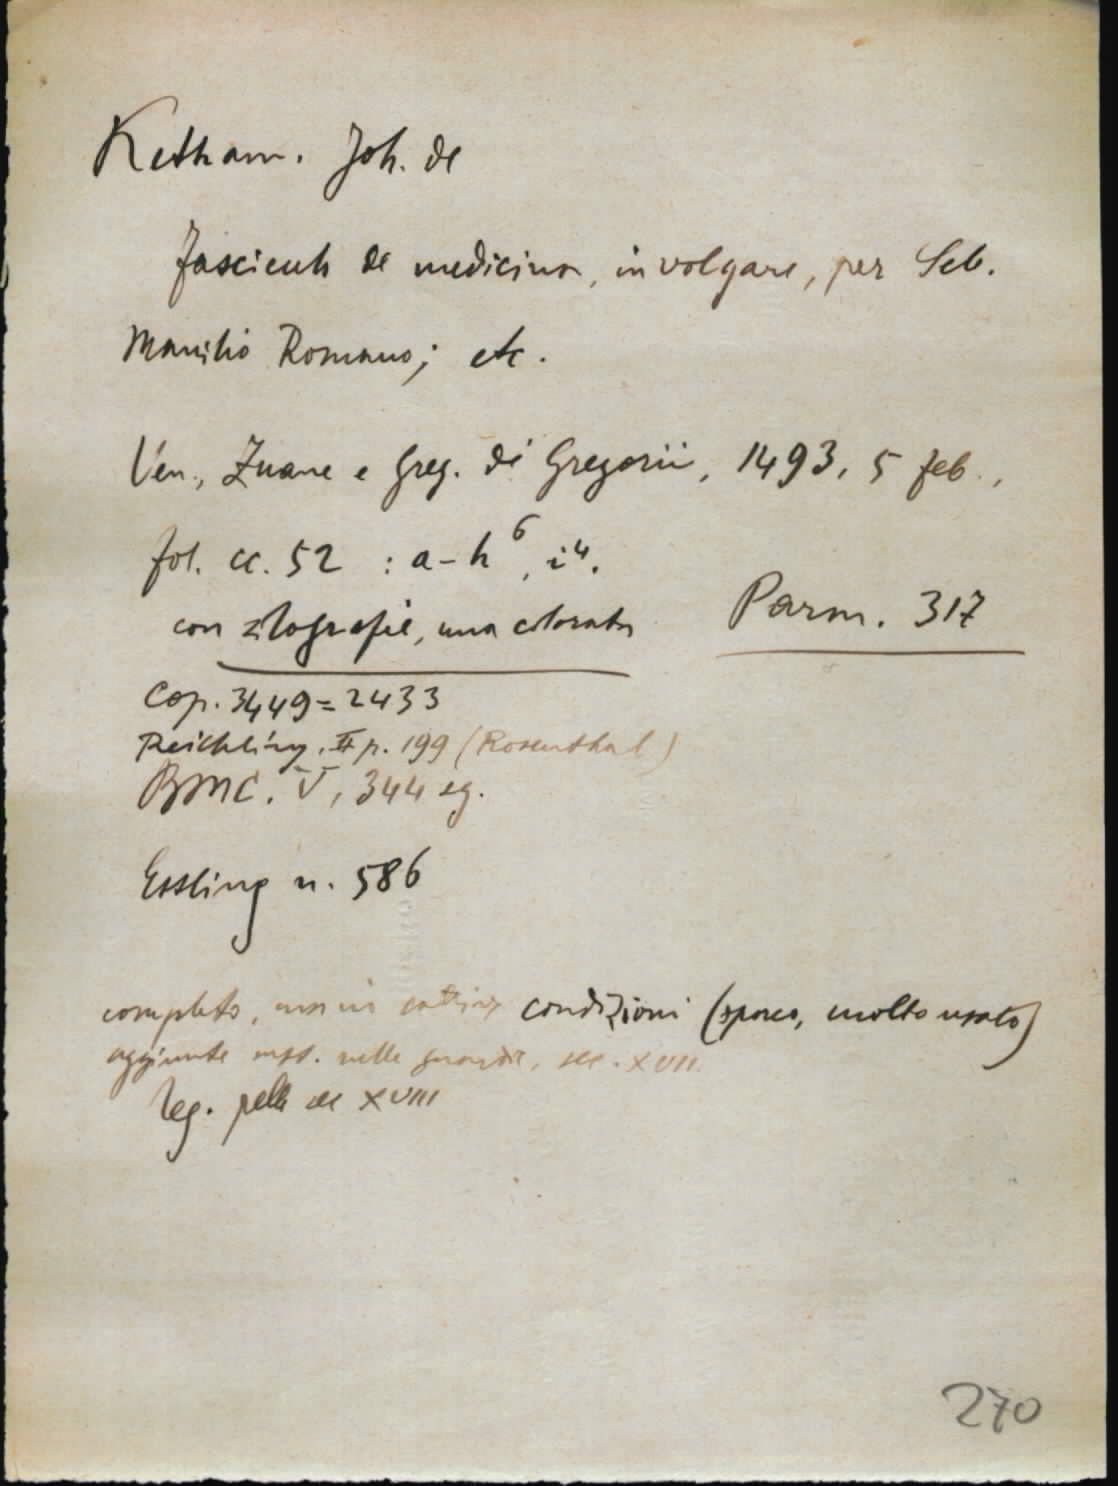 Ketham. Joh. de
Fasciculo de medicina, in volgare, per Seb.
Manilio Romano; etc.
Ven., Zuane e Greg. di Gregorii, 1493, 5 feb.,
fol. cc. 52 : a-h⁶, i⁴.
con xilografie, una colorata
Parm. 317
Cop. 3449=2433
Reichling, II p. 199 (Rosenthal)
BMC. V, 344 sg.
Essling n. 586
completo, ma in cattive condizioni (sporco, molto usato)
aggiunte mss. nelle guardie, sec. XVII.
leg. pelle sec XVIII
270